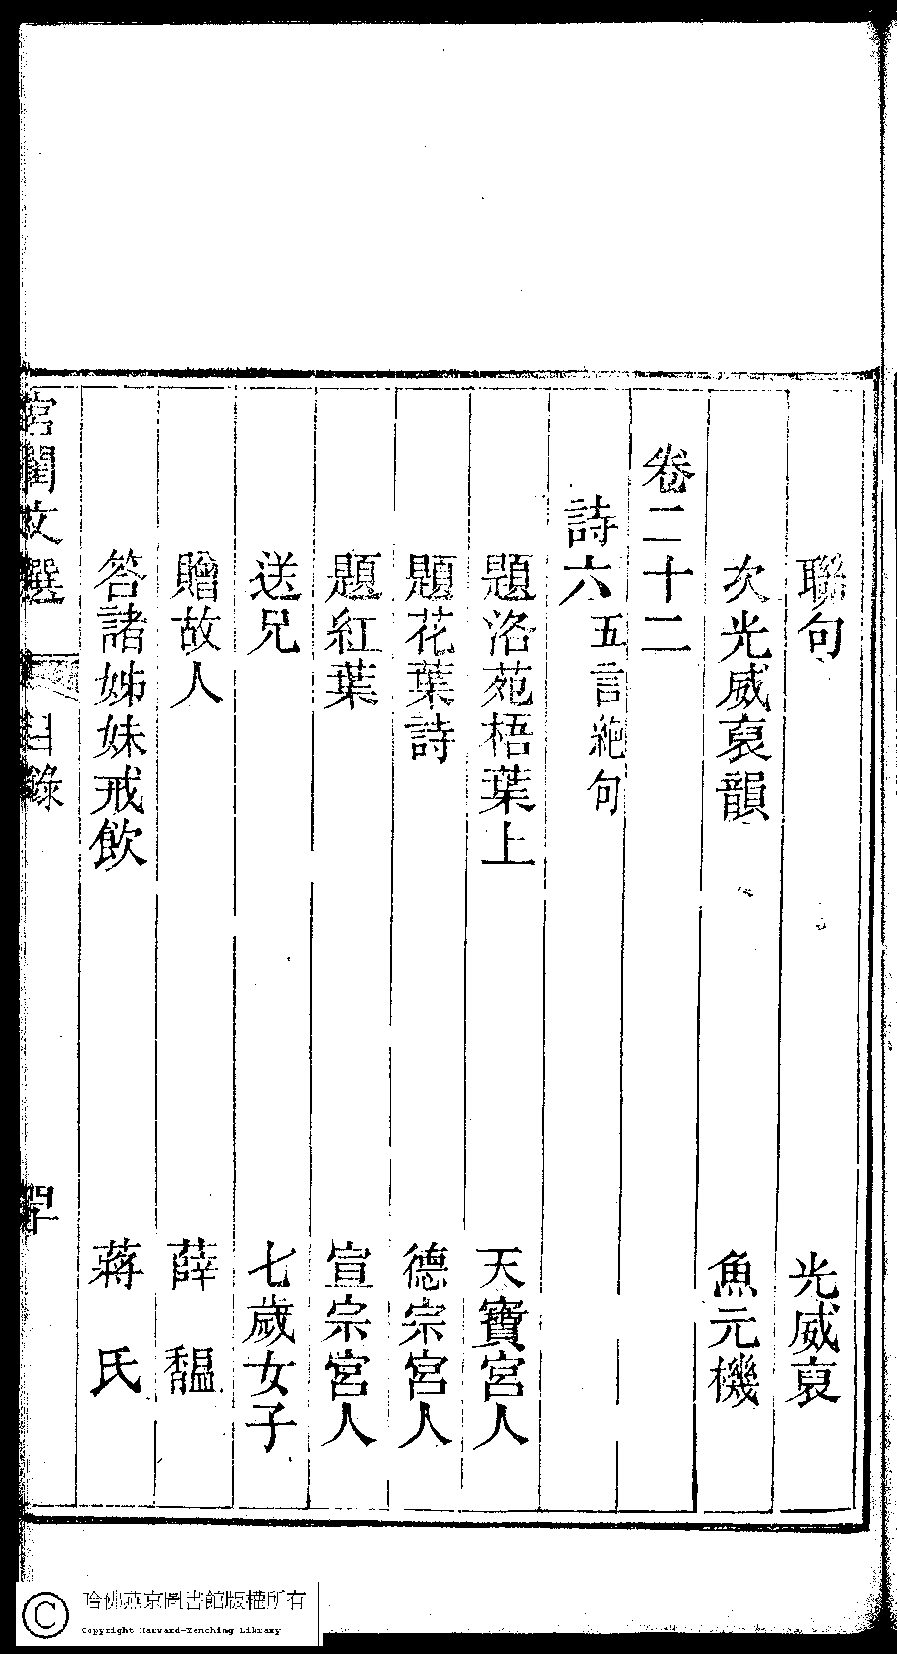 聯句 光威裒
次光威裒韻 魚元機
卷二十二
詩六 五言絕句
題洛苑梧葉上 天寶宮人
題花葉詩 德宗宮人
題紅葉 宣宗宮人
送兄 七歲女子
贈故人 薛馧
答諸姊妹戒飲 蔣氏
宮閨文選 目錄
哈佛燕京圖書館版權所有
Copyright Harvard-Yenching Library